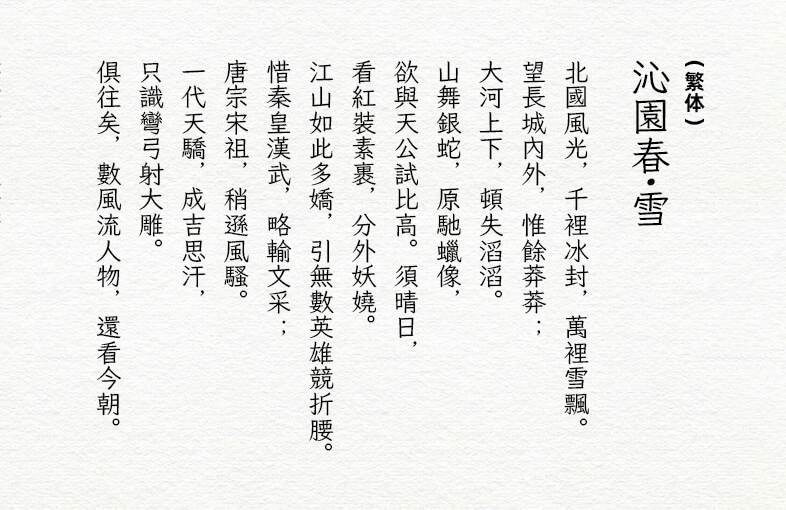 (繁体)
沁園春·雪
北國風光，千裡冰封，萬裡雪飄。
望長城內外，惟餘莽莽；
大河上下，頓失滔滔。
山舞銀蛇，原馳蠟像，
欲與天公試比高。須晴日，
看紅裝素裹，分外妖嬈。
江山如此多嬌，引無數英雄競折腰。
惜秦皇漢武，略輸文采；
唐宗宋祖，稍遜風騷。
一代天驕，成吉思汗，
只識彎弓射大雕。
俱往矣，數風流人物，還看今朝。